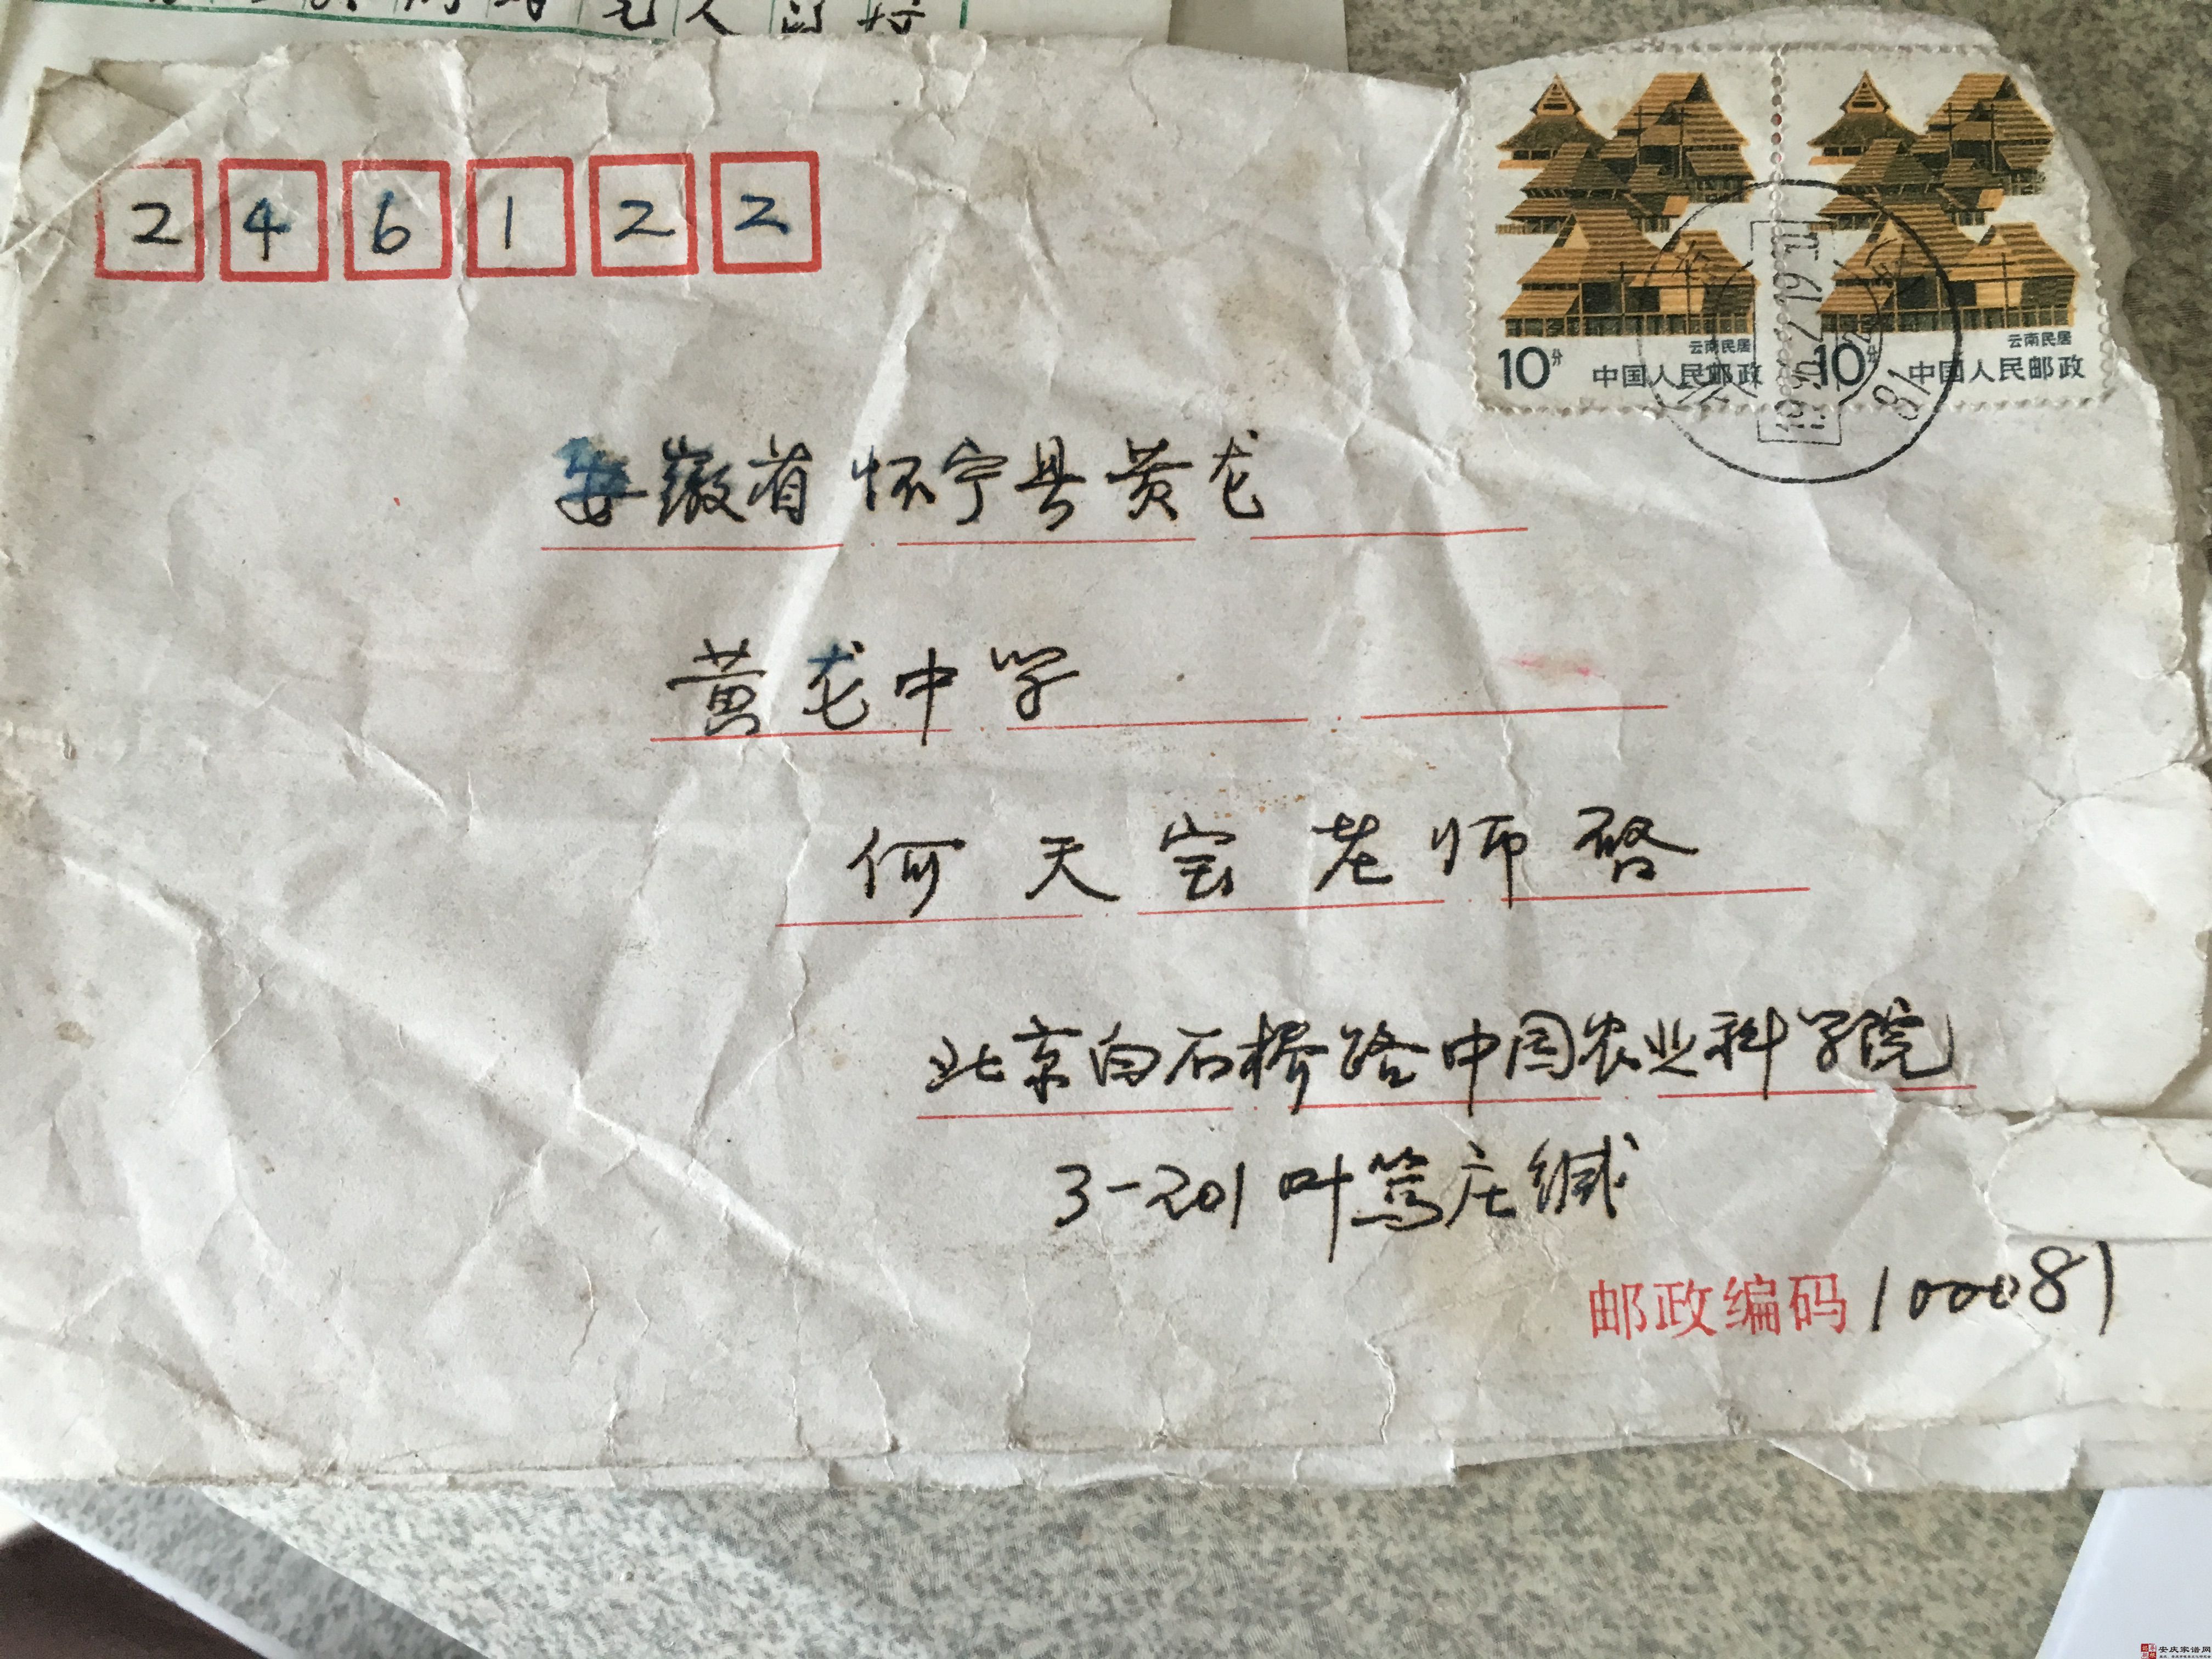 246122
云南民居 云南民居
10分 中国人民邮政 10分 中国人民邮政
安徽省怀宁县黄龙
黄龙中学
何天宝老师启
北京白石桥路中国农业科学院
3-201叶笃庄缄
邮政编码100081
安庆家谱网